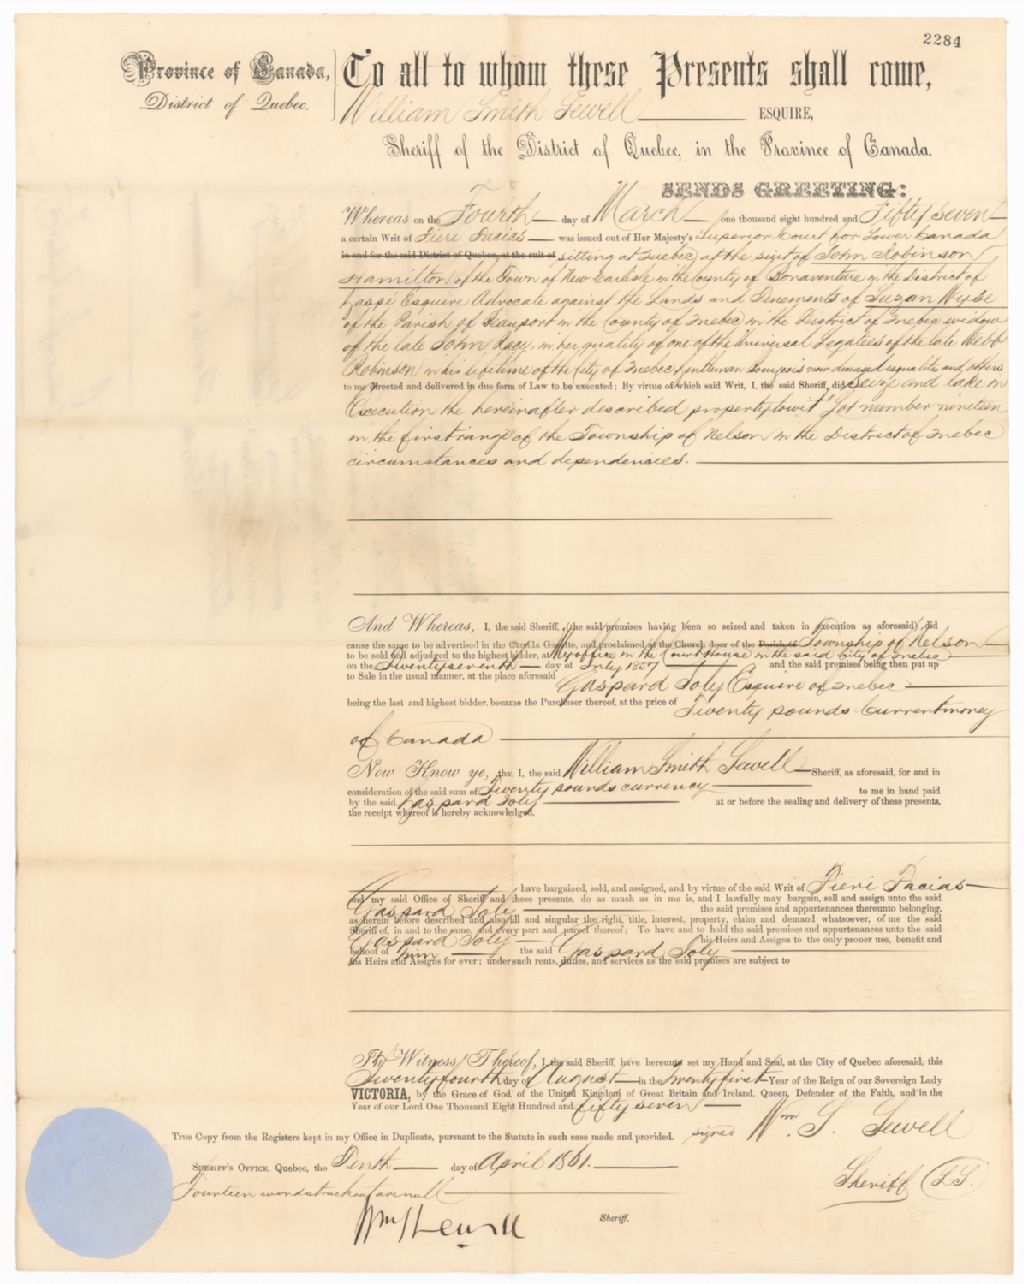 2284
Province of Canada,
District of Quebec.
To all to whom these Presents shall come,
William Smith Sewell ESQUIRE,
Sheriff of the District of Quebec, in the Province of Canada.
SENDS GREETING:
Whereas on the Fourth day of March one thousand eight hundred and Fifty seven
a certain Writ of Fieri Facias was issued out of Her Majesty's Superior Court for Lower Canada
in and for the said District of Quebec, at the suit of sitting at Quebec, at the suit of John Robinson
Hamilton of the Town of New Carlisle in the County of Bonaventure in the District of
Gaspé Esquire Advocate against the Lands and Tenements of Susan Wyse
of the Parish of Beauport in the County of Quebec in the District of Quebec widow
of the late John Racy, in her quality of one of the Universal Legatees of the late Webb
Robinson in his lifetime of the City of Quebec Gentleman now deceased and others
to me directed and delivered in due form of Law to be executed; By virtue of which said Writ, I, the said Sheriff, did seize and take in
Execution the hereinafter described property to wit: "Lot number nineteen
in the first range of the Township of Nelson in the District of Quebec
circumstances and dependencies.
And Whereas, I, the said Sheriff, (the said premises having been so seized and taken in execution as aforesaid) did
cause the same to be advertised in the Canada Gazette, and proclaimed at the Church door of the Parish of Township of Nelson
to be sold and adjudged to the highest bidder, at My office in the Court house in the said City of Quebec
on the Twenty seventh day of July 1857 and the said premises being then put up
to Sale in the usual manner, at the place aforesaid
Gaspard Joly Esquire of Quebec
being the last and highest bidder, became the Purchaser thereof, at the price of Twenty pounds Current money
of Canada
Now Know ye, that I, the said William Smith Sewell Sheriff, as aforesaid, for and in
consideration of the said sum of Twenty pounds currency to me in hand paid
by the said Gaspard Joly at or before the sealing and delivery of these presents,
the receipt whereof is hereby acknowledged,
have bargained, sold, and assigned, and by virtue of the said Writ of Fieri Facias
and my said Office of Sheriff and these presents, do as much as in me is, and I lawfully may bargain, sell and assign unto the said
Gaspard Joly the said premises and appurtenances thereunto belonging,
as herein before described and also all and singular the right, title, interest, property, claim and demand whatsoever, of me the said
Sheriff of, in and to the same, and every part and parcel thereof; To have and to hold the said premises and appurtenances unto the said
Gaspard Joly his Heirs and Assigns to the only proper use, benefit and
behoof of him the said Gaspard Joly
his Heirs and Assigns for ever; under such rents, duties, and services as the said premises are subject to
In Witness Thereof, I, the said Sheriff, have hereunto set my Hand and Seal, at the City of Quebec aforesaid, this
Twenty fourth day of August in the Twenty first Year of the Reign of our Sovereign Lady
VICTORIA, by the Grace of God, of the United Kingdom of Great Britain and Ireland, Queen, Defender of the Faith, and in the
Year of our Lord One Thousand Eight Hundred and fifty seven
True Copy from the Registers kept in my Office in Duplicate, pursuant to the Statute in such case made and provided. signed Wm. S. Sewell
SHERIFF'S OFFICE, Quebec, the Tenth day of April 1861.
Sheriff L.S.
Fourteen words struck out are null
Wm S Sewell
Sheriff.